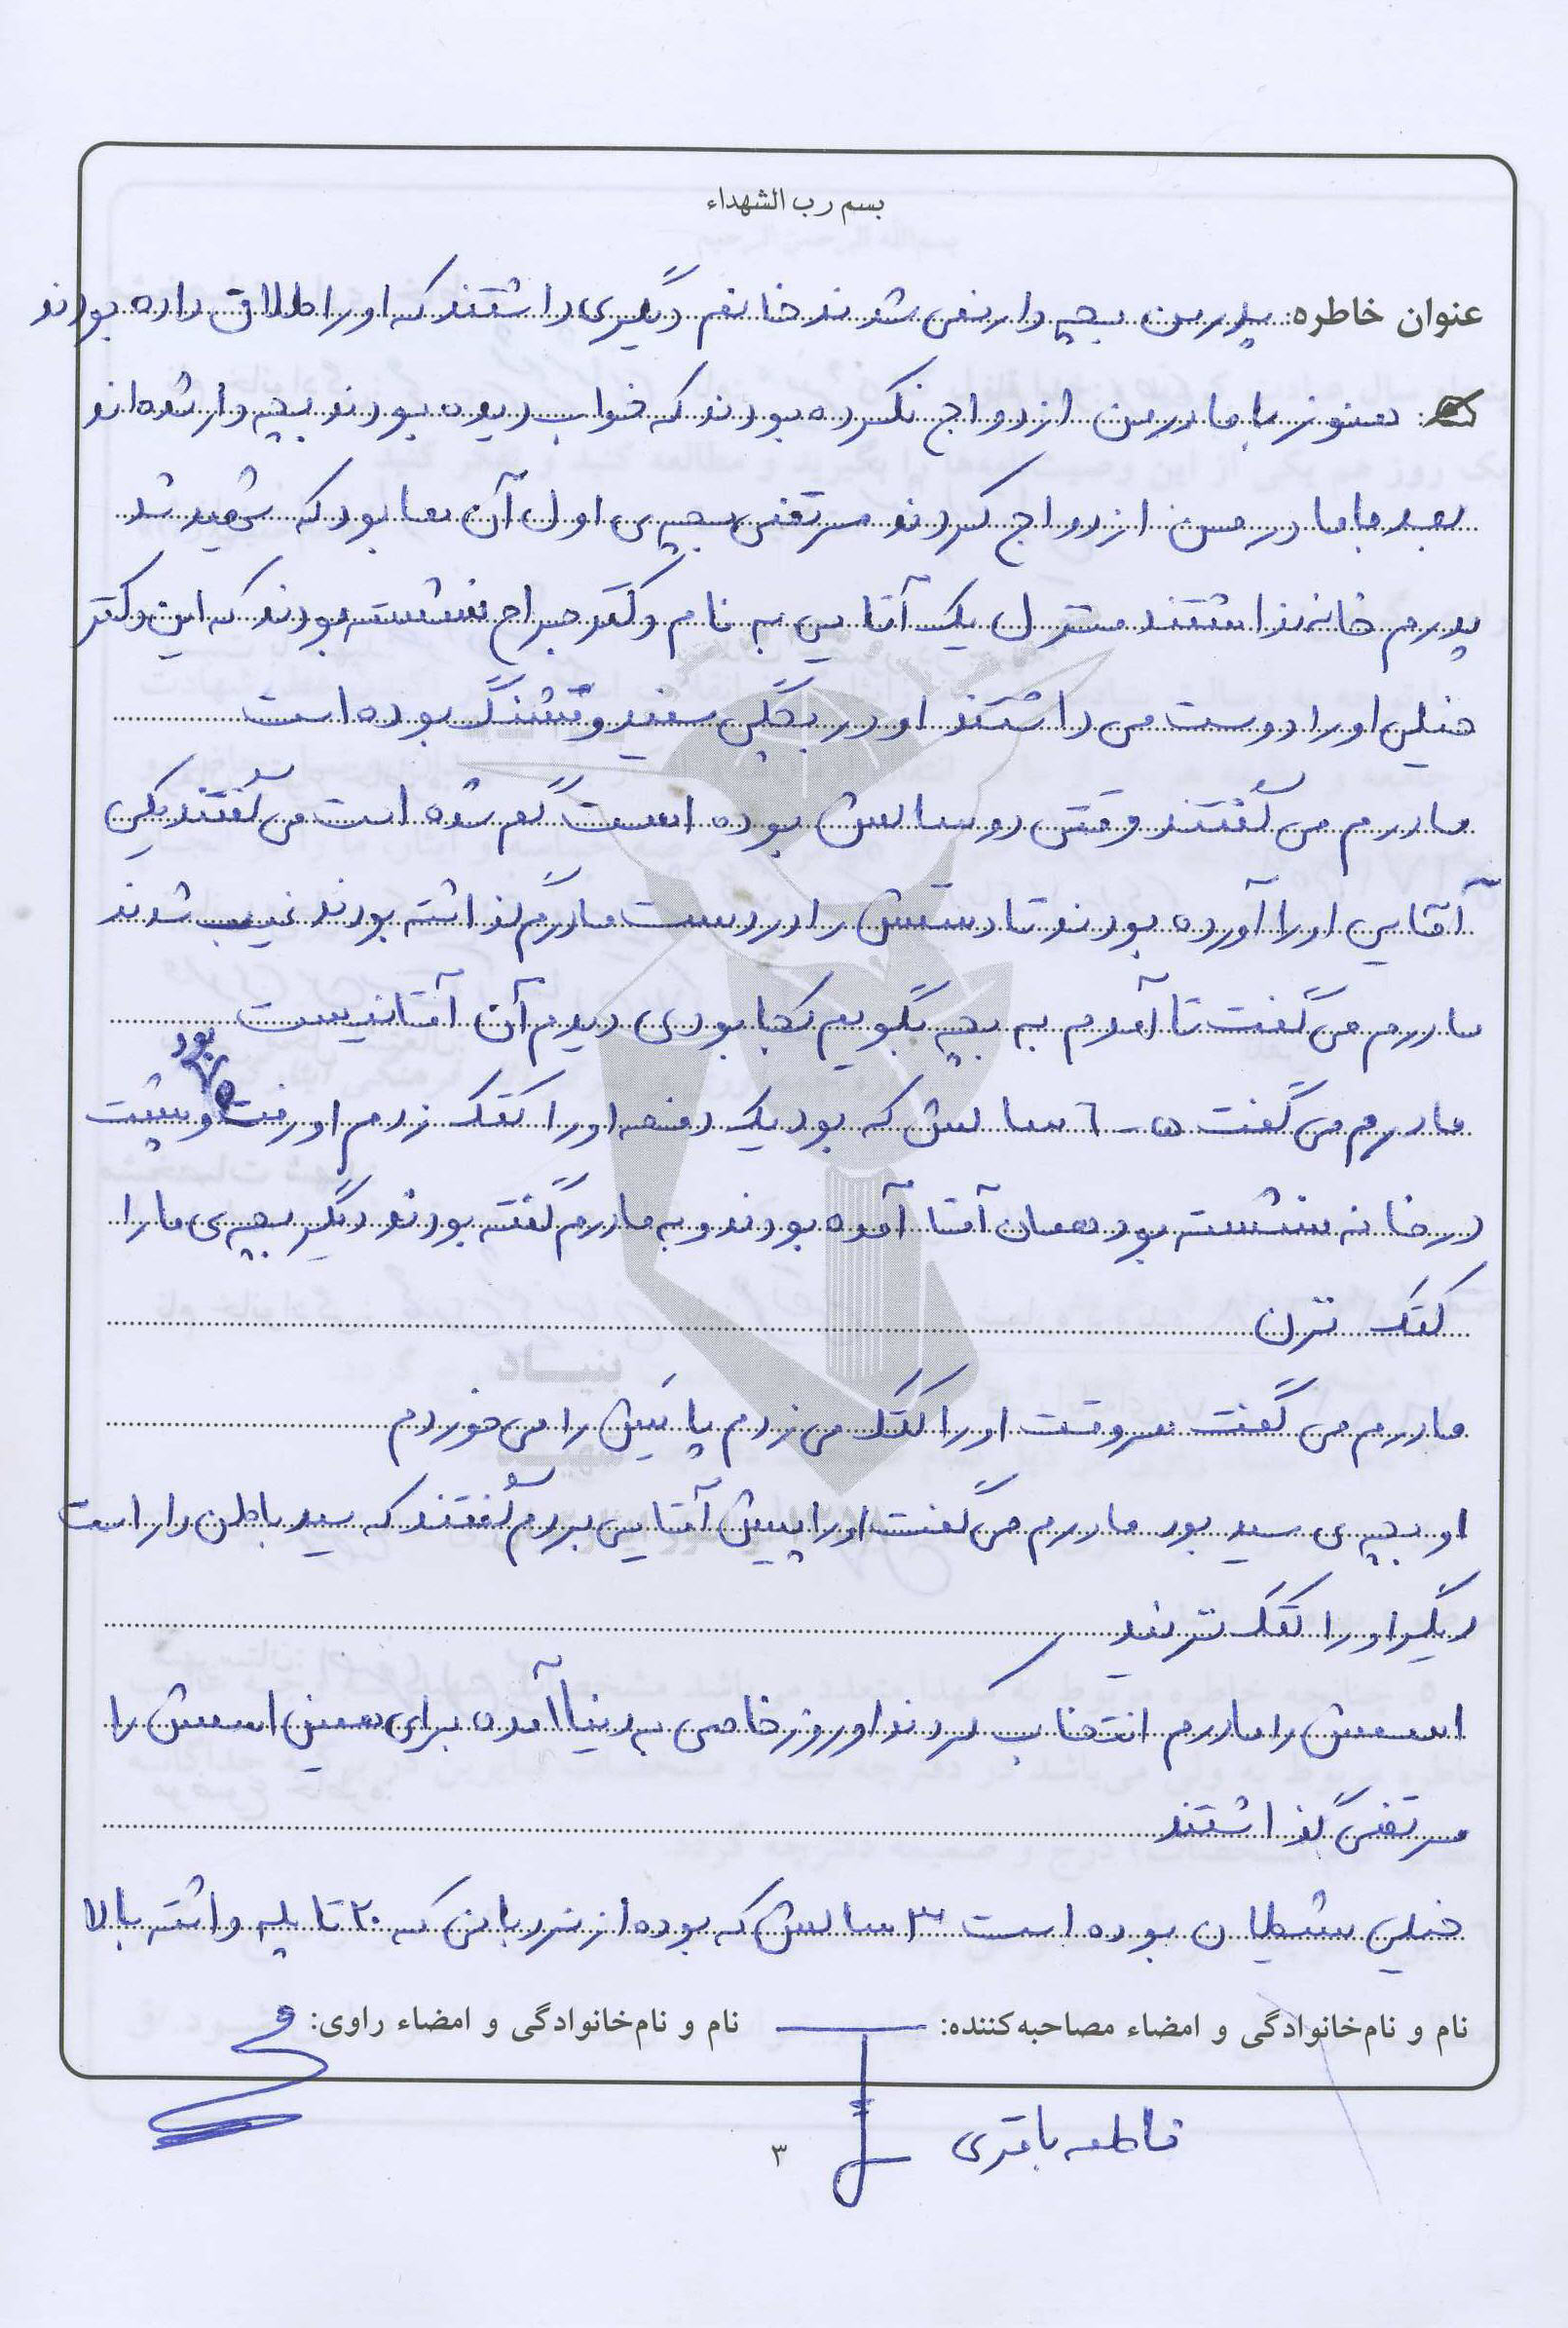 بسم رب الشهداء
عنوان خاطره: پدر من بچه دار نمی شدند خانم دیگری داشتند که او را طلاق داده بودند
هنوز با مادر من ازدواج نکرده بودند که خواب دیده بودند بچه دار شده اند
بعد با مادر من ازدواج کردند مرتضی بچه ی اول آن ها بود که شهید شد
پدرم خانه نداشتند منزل یک آقایی به نام دکتر جراح نشسته بودند که این دکتر
خیلی او را دوست می داشتند او در بچگی سفید و قشنگ بوده است
مادرم می گفتند وقتی دو سالش بوده است گم شده است می گفتند یکی
آقایی او را آورده بودند تا دستش را در دست مادرم گذاشته بودند غیب شدند
مادرم می گفت تا آمدم به بچه بگویم کجا بودی دیدم آن آقا نیست
مادرم می گفت ۵-۶ سالش که بود یک دفعه او را کتک زدم او رفته بود و پشت
در خانه نشسته بود همان آقا آمده بودند و به مادرم گفته بودند دیگر بچه ی ما را
کتک نزن
مادرم می گفت هر وقت او را کتک می زدم پائیش را می خوردم
او بچه ی سید بود مادرم می گفت او را پیش آقایی بردم گفتند که سید باطن دار است
دیگر او را کتک نزنید
اسمش را مادرم انتخاب کردند او روز خاصی به دنیا آمده برای همین اسمش را
مرتضی گذاشتند
خیلی شیطان بوده است ۳ سالش که بوده از نردبانی که ۲۰ تا پله داشته بالا
نام و نام‌خانوادگی و امضاء مصاحبه‌کننده: نام و نام‌خانوادگی و امضاء راوی:
فاطمه باقری
۳